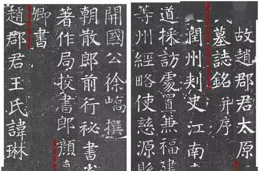 故趙郡君太原
墓誌銘并序
潤州刾史江南
道採訪處置兼福建
等州經略使慈源縣
開國公徐嶠撰
朝散郎前行秘書
著作局校書郎顏
卿書
趙郡君王氏諱琳